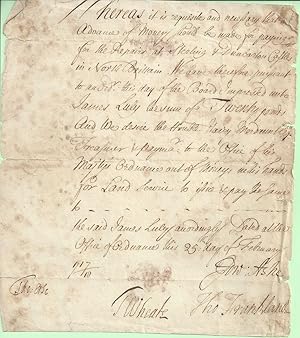 Whereas it is requisite and necessary that
Advance of Money should be made for payment
for the Repairs at Sterling & Dunbarton Castles
in North Britain We have therefore pursuant
to an Ordr. this day of the Board Imprested unto
James Luly the sum of Twenty pounds
And We desire the Honble Harry Mordaunt Esqr
Treasurer & paymr. to the Office of her
Majtys Ordnance out of Moneys in his hands
for Land Service to issue & pay the same
to
the said James Luly accordingly Dated at the
Office of Ordnance this 25 day of February
17
Edw Ashe
TWheate
Tho Frankland